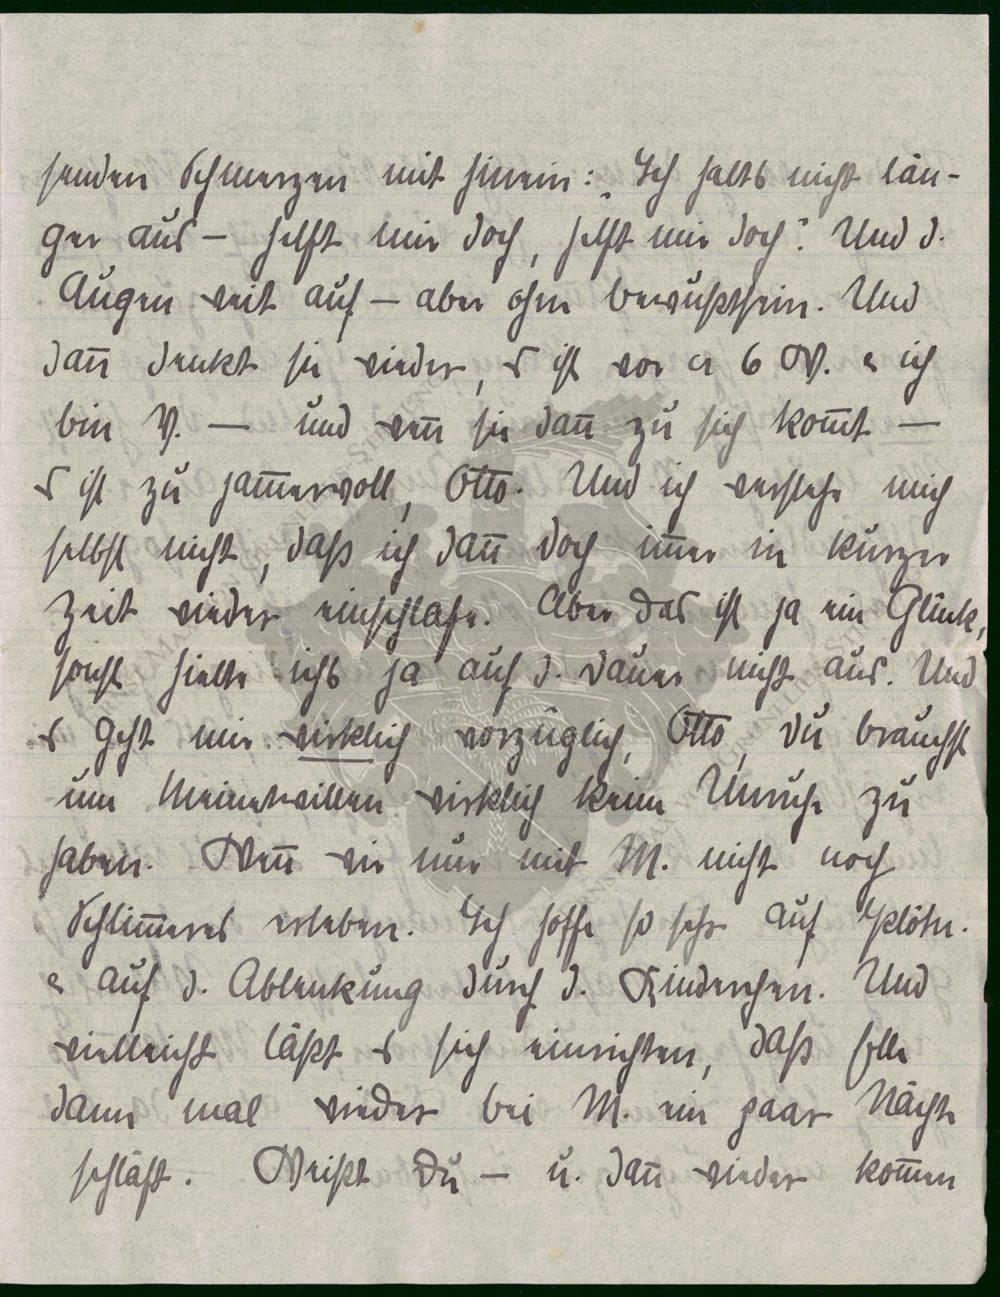 senden Schmerzen mit hinein: „Ich halts nicht län-
ger aus – helft mir doch, helft mir doch“. Und d.
Augen weit auf – aber ohne bewußtsein. Und
dañ denkt sie wieder, es ist vor 6 W. u ich
bin V. – und weñ sie dañ zu sich kom̅t –
es ist zu jam̅ervoll, Otto. Und ich verstehe mich
selbst nicht, daß ich dañ doch im̅er in kurzer
Zeit wieder einschlafe. Aber das ist ja ein Glück,
sonst hielte ichs ja auf d. Dauer nicht aus. Und
es geht mir wirklich vorzüglich, Otto, du brauchst
um Meinetwillen wirklich keine Unruhe zu
haben. Weñ wir nur mit M. nicht noch
Schlim̅eres erleben. Ich hoffe so sehr auf
u auf d. Ablenkung durch d. Kinderchen. Und
vielleicht läßt es sich einrichten, daß Elle
dann mal wieder bei M. ein paar Nächte
schläft. Weißt Du – u. dañ wieder kom̅en